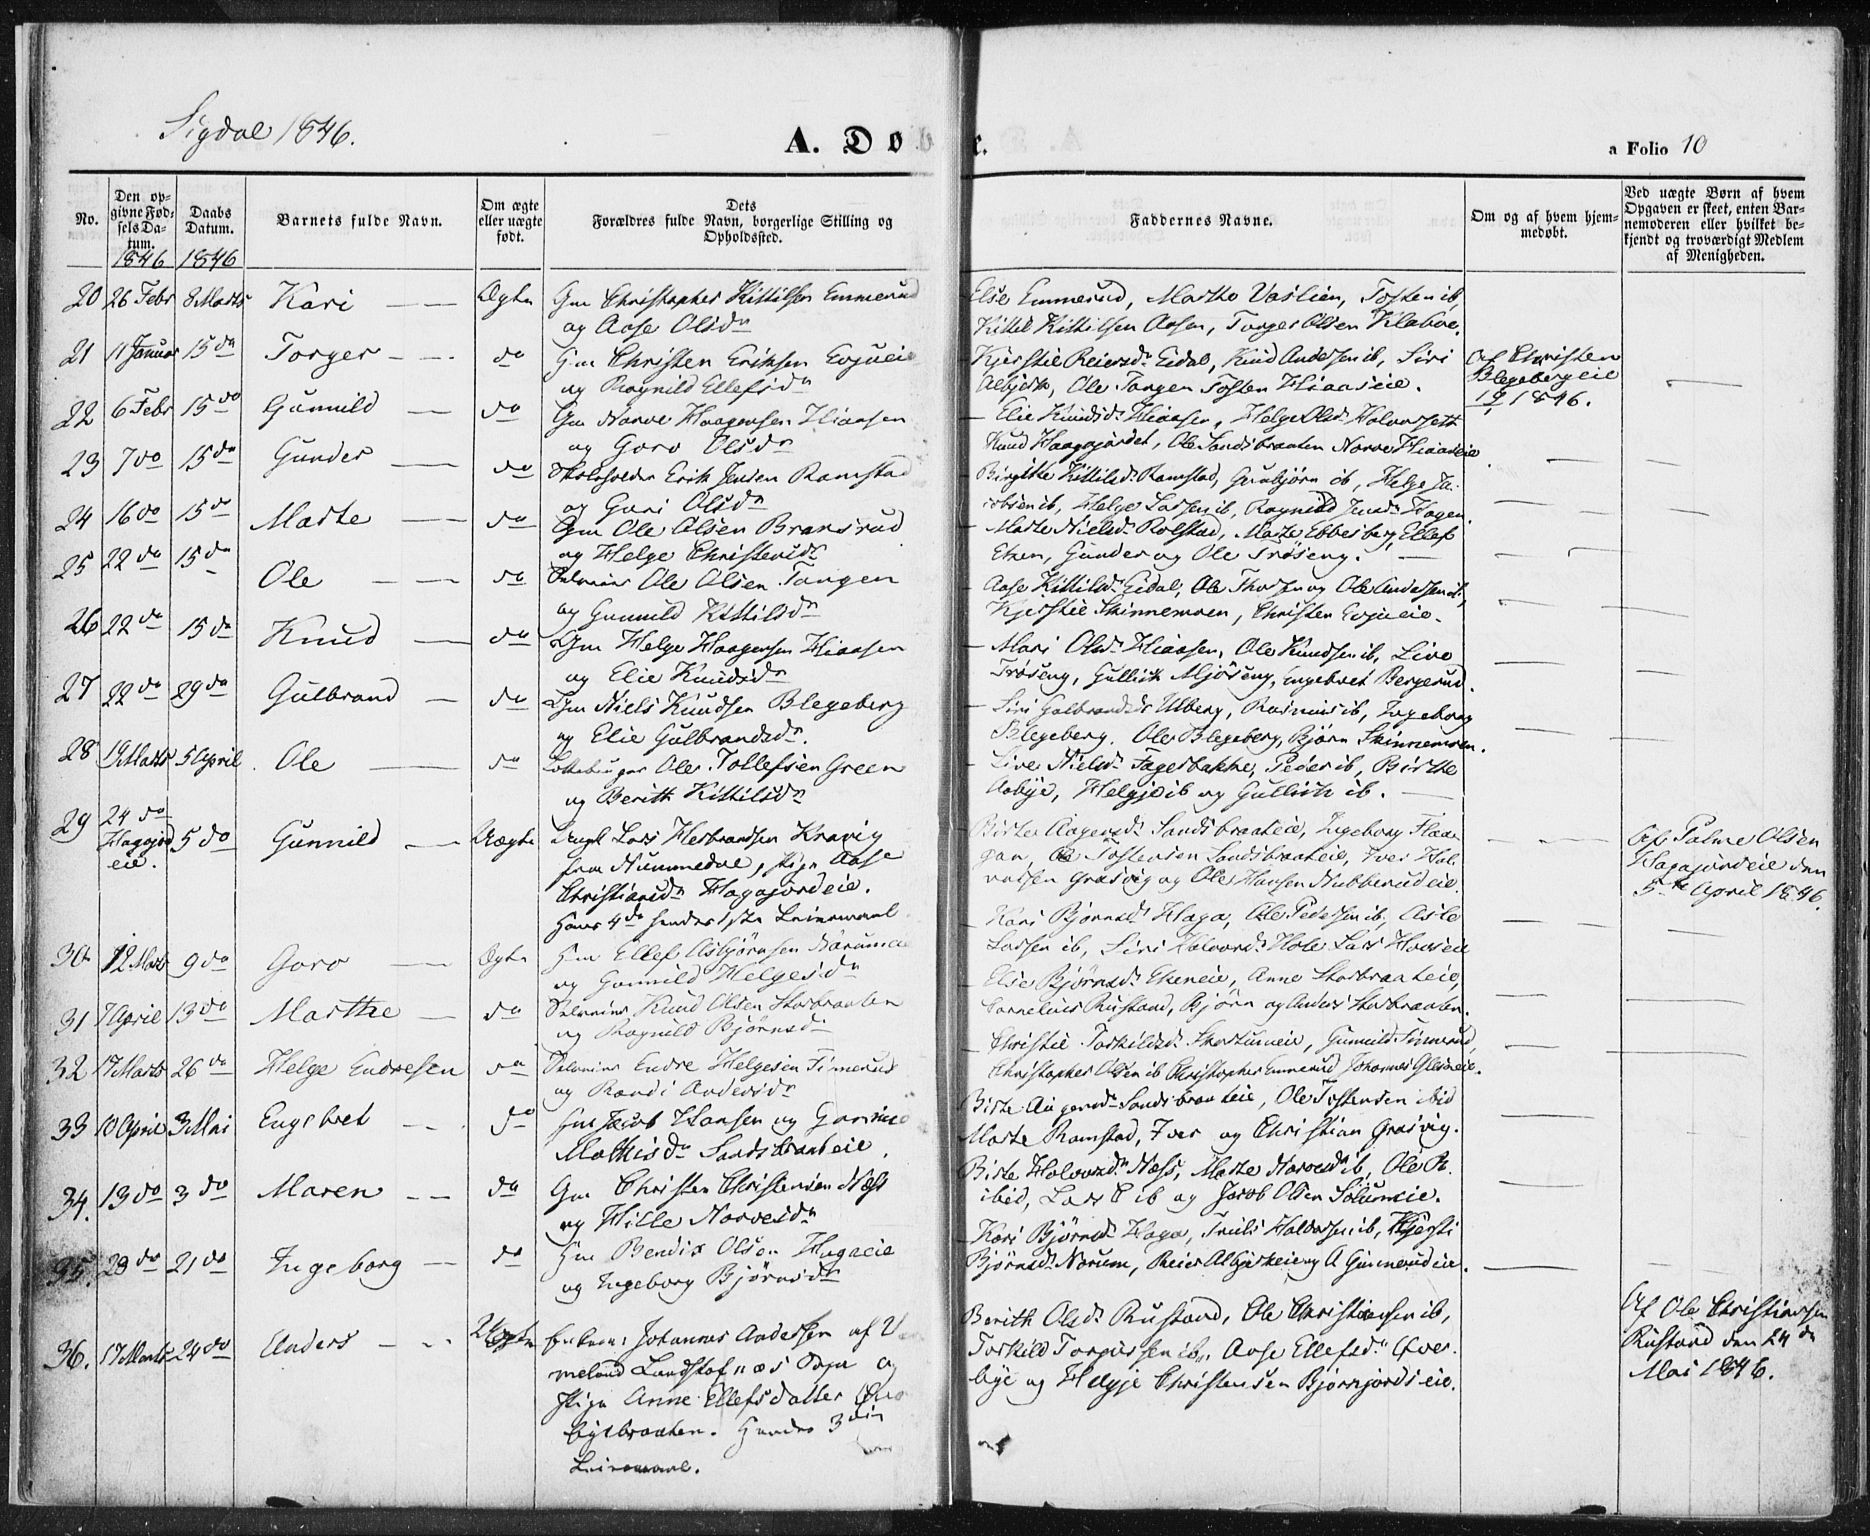 Sigdal 1846.
A. Døbte.
a Folio 10
No.
Den opgivne Fødsels Datum.
1846
Daabs Datum.
1846
Barnets fulde Navn.
Om ægte eller uægte født.
Dets
Forældres fulde Navn, borgerlige Stilling og
Opholdssted.
Faddernes Navne.
Om og af hvem hjemmedøbt.
Ved uægte Børn af hvem
Opgaven er skeet, enten Barnemoderen eller hvilket bekjendt og troværdigt Medlem
af Menigheden.
20 26 Febr 8 Marts Kari Ægte Gm Christopher Kittilsen Emmerud
og Aase Olsdr
Else Emmerud, Marthe Vaslien, Tosten ib,
Kittil Kittilsen Aasen, Torger Olsen Klabve.
21 11 Januar 15 do Torger do Gm Christen Eriksen Evjueie
og Ragnild Ellefsdr
Kjerstie Reiersdr Eidal, Knud Andersen ib, Siri
Albjerk, Ole Tangen Tosten Hiaaseie.
Af Christen
Blegebergeie
1846.
22 6 Febr 15 do Gunnild do Gm Narve Haagensen Hiaasen
og Goro Olsdr
Elie Knudsdr Hiaasen, Helge Olsdr Halvorseth
Knud Haagajordet, Ole Sandsbraaten Narve Hiaaseie
23 7 do 15 do Gunder do Skoleholder Erik Jensen Ramstad
og Guri Olsdr
Birgitte Kittilsdr Ramstad, Gunbjørn ib, Helge Ja-
cobsen ib, Helge Larsen ib, Ragnild Jensdr Hagen
24 16 do 15 do Marte do Gm Ole Olsen Bransrud
og Helge Christensdr
Marte Nielsdr Rolstad, Marte Ebbesberg, Ellef
Eken, Gunder og Ole Trøseng.
25 22 do 15 do Ole do Selveier Ole Olsen Tangen
og Gunnild Kittilsdr
Aase Kittilsdr Eidal, Ole Thorsen og Ole Andersen ib,
Kjerstie Skinnemoen, Christen Evjueie.
26 22 do 15 do Knud do Gm Helge Haagensen Hiaasen
og Elie Knudsdr
Mari Olsdr Hiaasen, Ole Knudsen ib, Live
Trøseng, Gullich Mjøseng, Engebret Bergerud.
27 22 do 29 do Gulbrand do Gm Niels Knudsen Blegeberg
og Elie Gulbrandsdr.
Siri Gulbrandsdr Ulberg, Rasmus ib, Ingeborg
Blegeberg, Ole Blegeberg, Bjørn Skinnemoen.
28 19 Marts 5 April Ole do Ole Tollefsen Green
og Berith Kittilsdr
Live Nielsdr Fagerbakke, Peder ib, Birthe
Aabye, Helgje ib og Gullich ib.
29 24 do
Hagajord
eie.
5 do Gunnild Uægte Ungk Lars Herbrandsen Kravig
fra Nummedal, pige Aase
Christiansdr Hagajordeie.
Hans 4de hendes 1ste Leiermaal
Birte Aagersdr Sandsbraateie, Ingeborg Flaa-
gan, Ole Tostensen Sandsbraateie, Iver Hal-
vorsen Grasvig og Ole Hansen Nubberudeie.
Af Palme Olsen
Hagajordeie den
5te April 1846.
30 12 Marts 9 do Goro Ægte Hm Ellef Asbjørnsen Nørumeie
og Gunnild Helgesdr
Kari Bjørnsdr Haga, Ole Pedersen ib, Aisle
Larsen ib, Siri Halvorsdr Hole Lars Haaseie
31 7 April 13 do Marthe do Selveier Knud Olsen Storbraaten
og Ragnild Bjørnsdr
Else Bjørnsdr Ekeneie, Anne Storbraateie,
Cornelius Rustand, Bjørn og Anders Storbraaten.
32 17 Marts 26 do Helge Endresen do Selveier Endre Helgesen Finnerud
og Randi Andersdr
Christie Torkildsdr Skartumeie, Gunnild Finnerud,
Christopher Olsen ib Christopher Emmerud Johannes Glesneie.
33 10 April 3 Mai Engebret do Hm Jacob Hansen og Gunnild
Mathisdr Sandsbraateie.
Birte Aagersdr Sandsbraateie, Ole Tostensen ibid
Marte Ramstad, Iver og Christian Grasvig.
34. 13 do 3 do Maren do Gm Christen Christensen Næss
og Hille Narvesdr
Birte Halvorsdr Næss, Marte Narvesdr ib, Ole
ibid, Lars C ib og Jacob Olsen Solumeie.
35. 23 do 21 do Ingeborg do Hm Bendix Olsen Hagaeie
og Ingeborg Bjørnsdr
Kari Bjørnsdr Haga, Truls Halvorsen ib, Kjersti
Bjørnsdr Norum, Reier Albjerkeie og A Ginnerudeie.
36. 17 Marts 24 do Anders Uægte Enkem: Johannes Andersen af Ver-
meland Landskof og
pige Anne Ellefsdatter Øver-
byebraaten. Hendes 3die
Leiermaal.
Berith Olsdr Rustand, Ole Christiansen ib,
Torkild Torgersen ib, Aase Ellefsdr Øver-
bye og Helgje Christensen Bjørnjordseie.
Af Ole Christiansen
Rustand den 24de
Mai 1846.